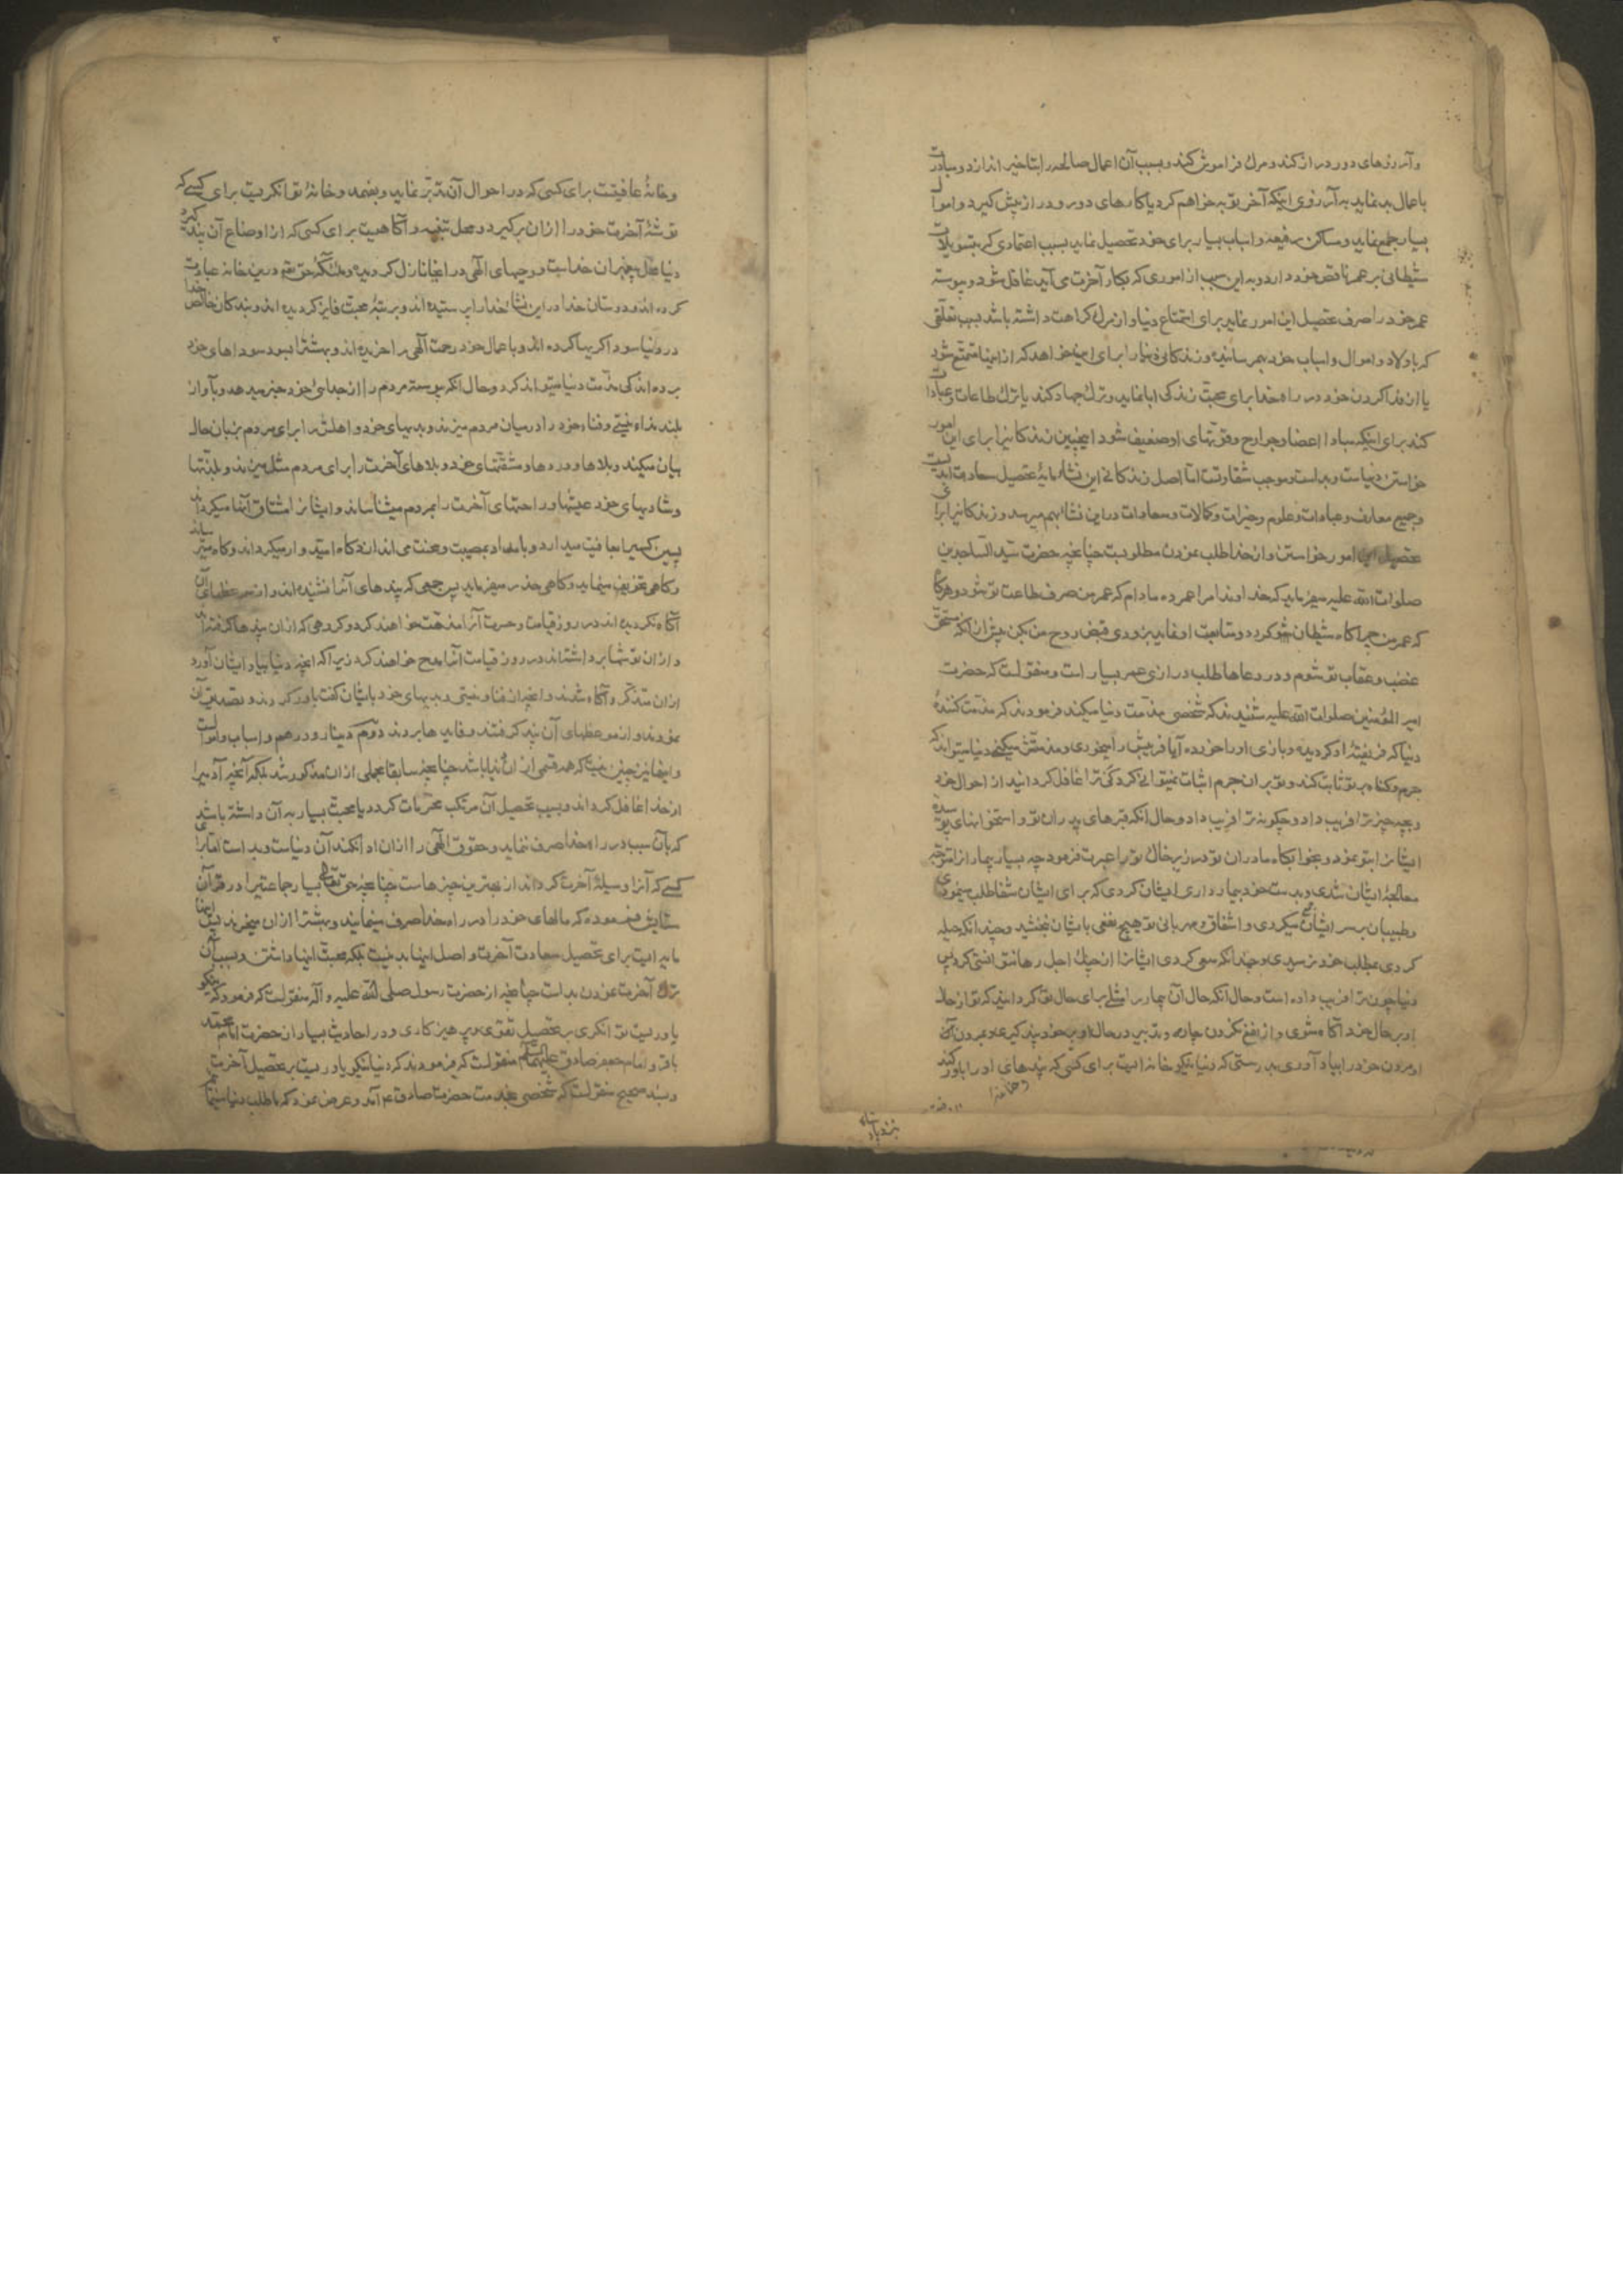 و آرزوهای دور دراز کند و مرگ فراموش کند و بسبب آن اعمال صالحه را بتاخیر اندازد و مبادرت
باعمال بد نماید به آرزوی اینکه آخر توبه خواهم کرد یا کارهای دور و دراز پیش گیرد و اموال
بسیار جمع نماید و مساکن رفیعه و اسباب بسیار برای خود تحصیل نماید بسبب اعتمادی که بتسویلات
شیطانی بر عمر ناقص خود دارد و به این سبب از اموری که بکار آخرت می آید غافل شود و پیوسته
عمر خود را صرف تحصیل این امور نماید برای تمتع دنیا و از مرگ کراهت داشته باشد بسبب تعلقی
که باولاد و اموال و اسباب خود بهم رسانیده و زندگانی دنیا را برای این خواهد که از اینها متمتع شود
یا از فدا کردن خود در راه خدا برای محبت زندگی ابا نماید و ترک جهاد کند یا ترک طاعات و عبادات
کند برای اینکه مبادا اعضا و جوارح و قوتهای او ضعیف شود اینچنین زندگانی را برای این امور
خواستن دنیاست و بد است و موجب شقاوتست اما اصل زندگانی این نشاه مایهٔ تحصیل سعادت ابدیست
و جمیع معارف و عبادات و علوم و خیرات و کمالات و سعادات در این نشا بهم میرسد و زندگانی را برای
تحصیل این امور خواستن و از خدا طلب نمودن مطلوبست چنانچه حضرت سید الساجدین
صلوات الله علیه میفرماید که خداوندا مرا عمر ده مادام که عمر من صرف طاعت تو شود و هرگاه
که عمر من چراگاه شیطان شود و متابعت او نماید بزودی قبض روح من بکن پیش از آنکه مستحق
غضب و عقاب تو شوم و در دعاها طلب درازی عمر بسیار است و منقولست که حضرت
امیر المؤمنین صلوات الله علیه شنیدند که شخصی مذمت دنیا میکند فرمودند که مذمت کنندهٔ
دنیا که فریفتهٔ او گردیده و بازی او را خورده آیا فریبش را میخوری و مذمتش میکنی دنیا میتواند که
جرم و گناه بر تو ثابت کند و تو بر آن جرم اثبات نمیتوانی کرد کی ترا غافل گردانید از احوال خود
و بچه چیز ترا فریب داد و چگونه ترا فریب داد و حال آنکه قبرهای پدران تو و استخوانهای پوسیده
ایشان را بتو نمود و بخوابگاه مادران تو در زیر خاک تو را عبرت فرمود چه بسیار بیمار را متوجه
معالجهٔ ایشان شدی و بدست خود بیمارداری ایشان کردی که برای ایشان شفا طلب مینمودی
و طبیبان بر سر ایشان میکردی و اشفاق و مهربانی تو هیچ نفعی بایشان نبخشید و چندانکه حیله
کردی بمطلب خود نرسیدی و چندانکه سعی کردی ایشان را از چنگ اجل رها نتوانستی کرد پس
دنیا چون ترا فریب داده است و حال آنکه حال آن بیمار را مثلی برای حال تو گردانید که تو از حال
او بر حال خود آگاه شوی و از نفع نکردن چاره و تدبیر در حال او بر خود پند گیری و بمردن آن
او مردن خود را بیاد آوری بدرستی که دنیا نیکو خانه ایست برای کسی که پندهای او را باور کند
و خانهٔ عافیتست برای کسی که در احوال آن تدبر نماید و بفهمد و خانهٔ توانگریست برای کسی که
توشهٔ آخرت خود را از آن برگیرد و محل تنبیه و آگاهیست برای کسی که از اوضاع آن پند گیرد
دنیا محل پیغمبران خداست و وحیهای الهی در اینجا نازل گردیده و ملئکهٔ حق تعم درین خانه عبادت
کرده اند و دوستان خدا در این نشا خدا را پرستیده اند و برتبهٔ محبت فایز گردیده اند و بندگان خالص خدا
در دنیا سوداگریها کرده اند و باعمال خود رحمت الهی را خریده اند و بهشت را بسود سوداهای خود
برده اند کی مذمت دنیا میتواند کرد و حال آنکه پیوسته مردم را از جدایی خود خبر میدهد و بآواز
بلند نداء نیستی و فناء خود را در میان مردم میزند و بدیهای خود و اهلش را برای مردم بزبان حال
بیان میکند و بلاها و دردها و مشقتهای خود و بلاهای آخرت را برای مردم مثل میزند و بلذتها
و شادیهای خود عیشها و راحتهای آخرت را بمردم میشناساند و ایشان را مشتاق آنها میگرداند
پسین کسی را بعافیت میدارد و بامداد بمصیبت و محنت می اندازد گاه امیدوار میگرداند و گاه میترساند
و گاهی تخویف مینماید و گاهی حذر میفرماید پس جمعی که پندهای آنرا نشنیده اند و از موعظهای آن
آگاه نگردیده اند در روز قیامت و حسرت آنرا مذمت خواهند کرد و گروهی که از آن پندها گرفته اند
و از آن توشها برداشته اند در روز قیامت آنرا مدح خواهند کرد زیرا که آنچه دنیا بیاد ایشان آورد
از آن متذکر و آگاه شدند و آنچه از فنا و نیستی و بدیهای خود بایشان گفت باور کردند و تصدیق آن
نمودند و از موعظهای آن پند گرفتند و فایده ها بردند دوم دینار و درهم و اسباب و اموالست
و اینها نیز چنین نیست که همه قسمی از آن دنیا باشد چنانچه سابقا مجملی از آن مذکور شد بلکه آنچه آدمی را
از خدا غافل گرداند و بسبب تحصیل آن مرتکب محرمات گردد یا محبت بسیار به آن داشته باشد
که بآن سبب در راه خدا صرف ننماید و حقوق الهی را از آن ادا نکند آن دنیاست و بد است اما برای
کسی که آنرا وسیلهٔ آخرت گرداند از بهترین چیزهاست چنانچه حق تعالی بسیار جماعتی را در قرآن
ستایش فرموده که مالهای خود را در راه خدا صرف مینمایند و بهشت را از آن میخرند پس اینها
مایه ایست برای تحصیل سعادت آخرت و اصل اینها بد نیست بلکه محبت اینها داشتن و بسبب آن
ترک آخرت نمودن بد است چنانچه از حضرت رسول صلی الله علیه و آله منقولست که فرمود که نیکو
یاوریست توانگری بر تحصیل تقوی و پرهیزکاری و در احادیث بسیار از حضرت امام محمد
باقر و امام جعفر صادق علیهما السلام منقولست که فرمودند که دنیا نیکو یاوریست بر تحصیل آخرت
و بسند صحیح منقولست که شخصی بخدمت حضرت صادق ع آمد و عرض نمود که ما طلب دنیا مینمائیم